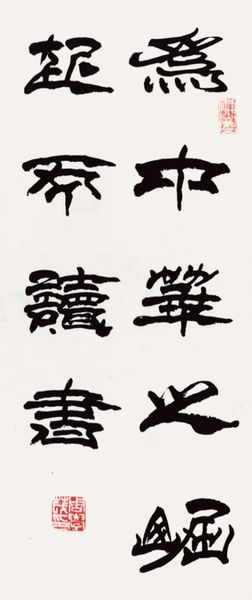 爲中華之崛
起而讀書